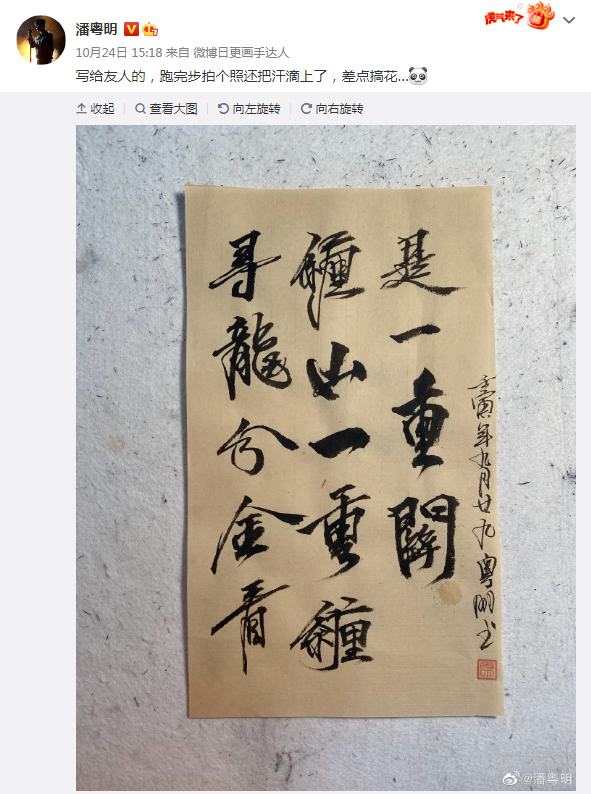 潘粤明
虎气来了
10月24日 15:18 来自 微博日更画手达人
写给友人的，跑完步拍个照还把汗滴上了，差点搞花...
收起 查看大图 向左旋转 向右旋转
尋龍分金看
纏山一重纏
是一重關
壬寅年九月廿九粤明书
@潘粤明